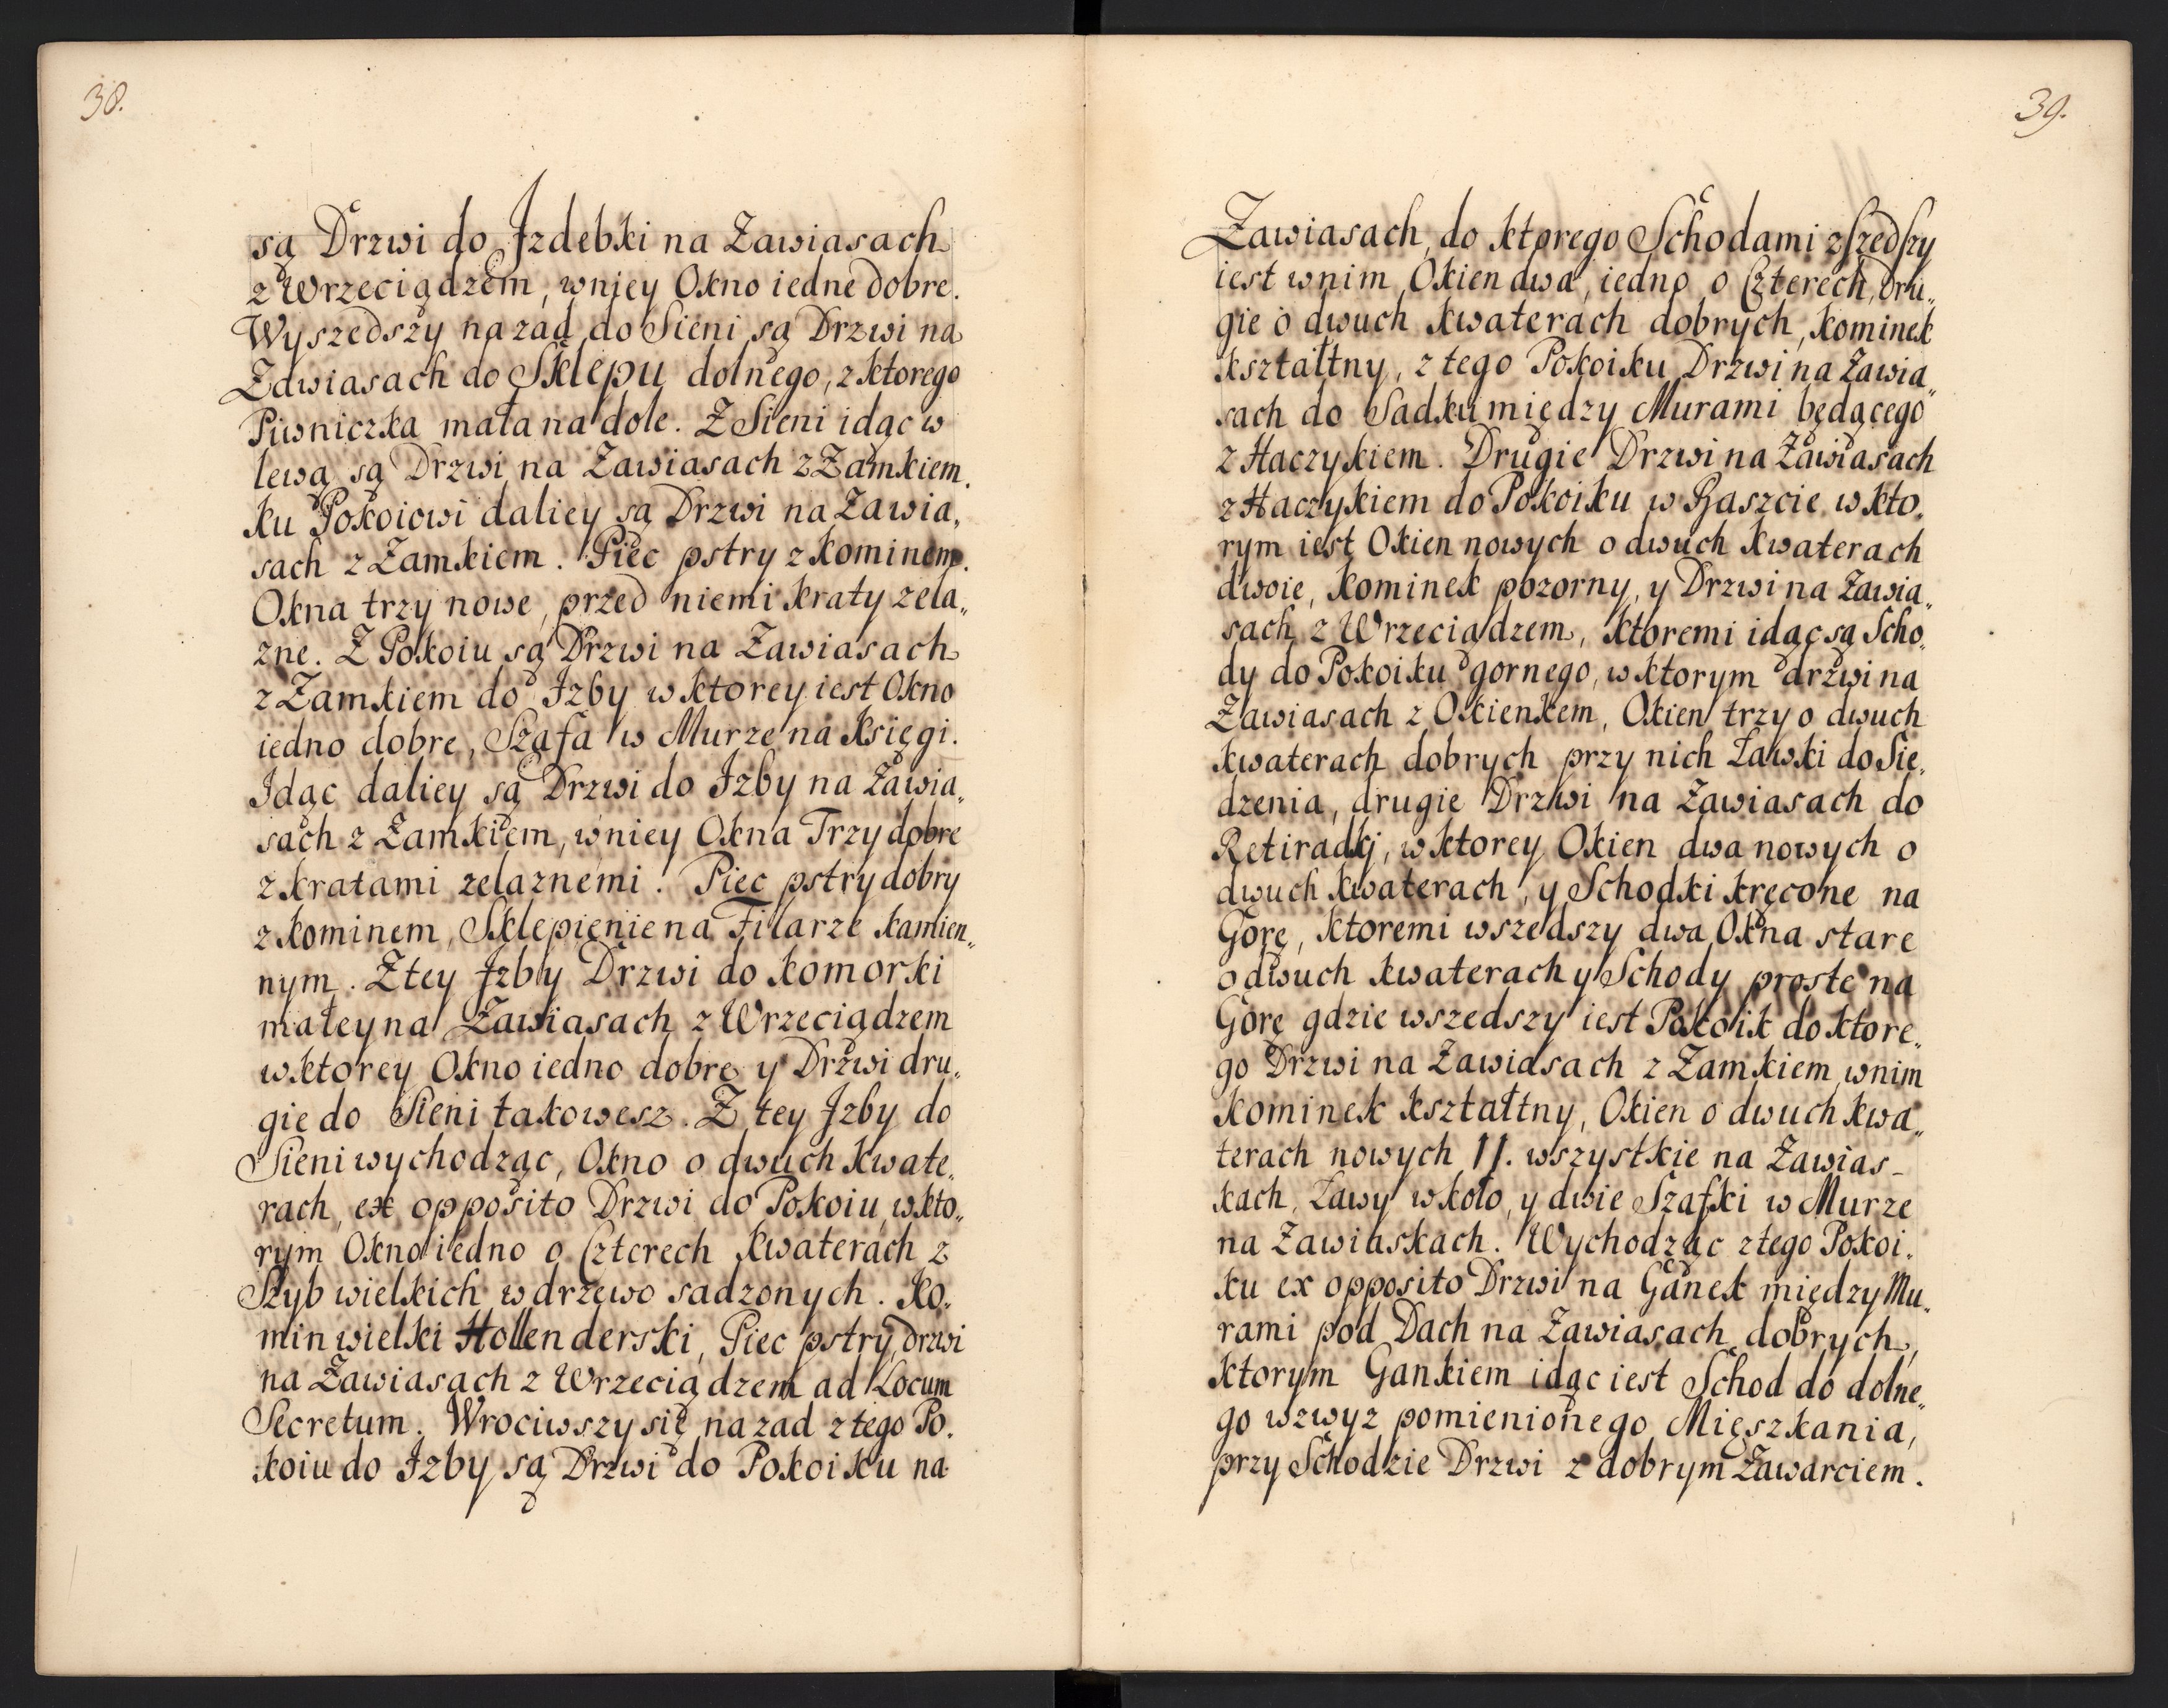 38.
są Drzwi do Jzdebki na Zawiasach
z Wrzeciądzem, wniey Okno iedne dobre.
Wyszedszy nazad do Sieni są Drzwi na
Zawiasach do Sklepu dolnego, z ktorego
Piwniczka mała na dole. Z Sieni idąc w
lewą są Drzwi na Zawiasach z Zamkiem.
ku Pokoiowi daliey są Drzwi na Zawia„
sach z Zamkiem. Piec pstry z kominem.
Okna trzy nowe, przed niemi kraty zela„
zne. Z Pokoiu są Drzwi na Zawiasach
z Zamkiem do Jzby w ktorey iest Okno
iedno dobre, Szafa w Murze na Księgi.
Jdąc daliey są Drzwi do Jzby na Zawia„
sach z Zamkiem, wniey Okna Trzy dobre
z kratami zelaznemi. Piec pstry dobry
z kominem, Sklepienie na Filarze kamien„
nym. Z tey Jzby Drzwi do komorki
małey na Zawiasach z Wrzeciądzem
wktorey Okno iedno dobre y Drzwi dru„
gie do Sieni takowesz. Z tey Jzby do
Sieni wychodząc, Okno o dwuch kwate„
rach, ex opposito Drzwi do Pokoiu, wkto„
rym Okno iedno o Czterech kwaterach z
Szyb wielkich w drzewo sadzonych. Ko„
min wielki Hollenderski, Piec pstry, drzwi
na Zawiasach z Wrzeciądzem ad Locum
Secretum. Wrociwszy się nazad z tego Po„
koiu do Jzby są Drzwi do Pokoiku na
39.
Zawiasach, do ktorego Schodami zszedszy
iest wnim Okien dwa, iedno o Czterech, dru„
gie o dwuch kwaterach dobrych, Kominek
kształtny, z tego Pokoiku Drzwi na Zawia„
sach do Sadku między Murami będącego
z Haczykiem. Drugie Drzwi na Zawiasach
z Haczykiem do Pokoiku w Baszcie, w kto„
rym iest Okien nowych o dwuch kwaterach
dwoie, kominek pozorny, y Drzwi na Zawia„
sach z Wrzeciądzem, ktoremi idąc są Scho„
dy do Pokoiku gornego, w ktorym drzwi na
Zawiasach z Okienkem, Okien trzy o dwuch
kwaterach dobrych przy nich Ławki do Sie„
dzenia, drugie Drzwi na Zawiasach do
Retiradkj, w ktorey Okien dwa nowych o
dwuch kwaterach, y Schodki kręcone na
Gorę, ktoremi wszedszy dwa Okna stare
o dwuch kwaterach y Schody proste na
Gorę gdzie wszedszy iest Pokoik do ktore„
go Drzwi na Zawiasach z Zamkiem, wnim
kominek kształtny, Okien o dwuch kwa„
terach nowych 11. wszystkie na Zawias-
kach, Ławy wkoło, y dwie Szafki w Murze
na Zawiaskach. Wychodząc z tego Pokoi„
ku ex opposito Drzwi na Ganek między Mu„
rami pod Dach na Zawiasach dobrych,
ktorym Gankiem idąc iest Schod do dolne„
go wzwyz pomienionego Mięszkania,
przy Schodzie Drzwi z dobrym Zawarciem.